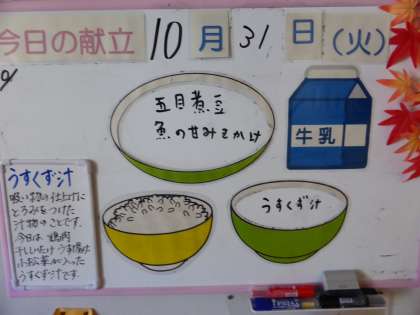 今日の献立 10月31日(火)
五目煮豆
魚の甘みそかけ
牛乳
うすくず汁
うすくず汁
吸い物の仕上げに
とろみをつけた
汁物のことです。
今日は、鶏肉
干ししいたけ うす揚げ
小松菜が入った
うすくず汁です。